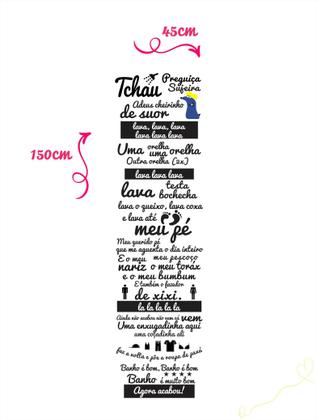 45cm
150cm
Tchau Preguiça
Sujeira
Adeus cheirinho
de suor
lava, lava, lava
lava lava lava
Uma orelha uma orelha
Outra orelha (2x)
lava lava lava
lava testa
bochecha
lava o queixo, lava coxa
e lava até
meu pé
Meu querido pé
que me aguenta o dia inteiro
E o meu meu pescoço
nariz o meu tórax
e o meu bumbum
E também o fazedor
de xixi.
la la la la la
Ainda não acabou não vem cá vem
Uma enxugadinha aqui
uma coladinha ali
faz a volta e põe a roupa de paxá
Banho é bom, Banho é bom
Banho é muito bom
Agora acabou!